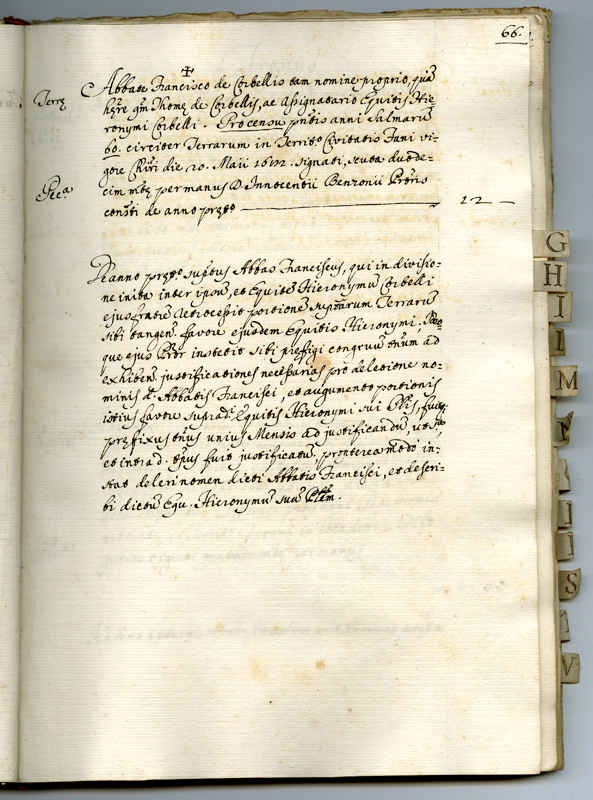 66.
✝
Abbate Francisco de Corbellio tam nomine proprio, quã
Terrę
hẹre qm̃ Thomę de Corbellis, ac assignatario Equitis Hie-
ronymi Corbelli. Pro censu pñtis anni Salmarũ
60. circiter Terrarum in Territo Civitatis Fani vi-
gore Chiri die 20. Maii 1612. signati, scuta duode-
Pec.a
cim mtę per manus D. Innocentii Benzonii Prõris
consti de anno prẹto 12 —
De anno prẹto suptus Abbas Franciscus, qui in divisio-
ne inita inter ipsũ, et Equitẽ Hieronymũ Corbelli
ejus fratrẽ retrocessit portionẽ suptarum Terrarũ
sibi tangen. favore ejusdem Equitis Hieronymi.
que ejus Prõr institit sibi prefigi congruũ tm̃um ad
exhibeñ. justificationes necessarias pro deletione no-
minis d. Abbatis Francisci, et augumento portionis
istius favore suprad. Equitis Hieronymi sui Plis, fuitq;
prẹfixus tñus unius Mensis ad justificandũ, ut s.a,
et intra d. tpus fuit justificatũ, propterea modo in-
stat deleri nomen dicti Abbatis Francisci, et descri-
bi dictũ Equ. Hieronymũ suũ Plem.
G
H
I
I
M
I
I
S
V